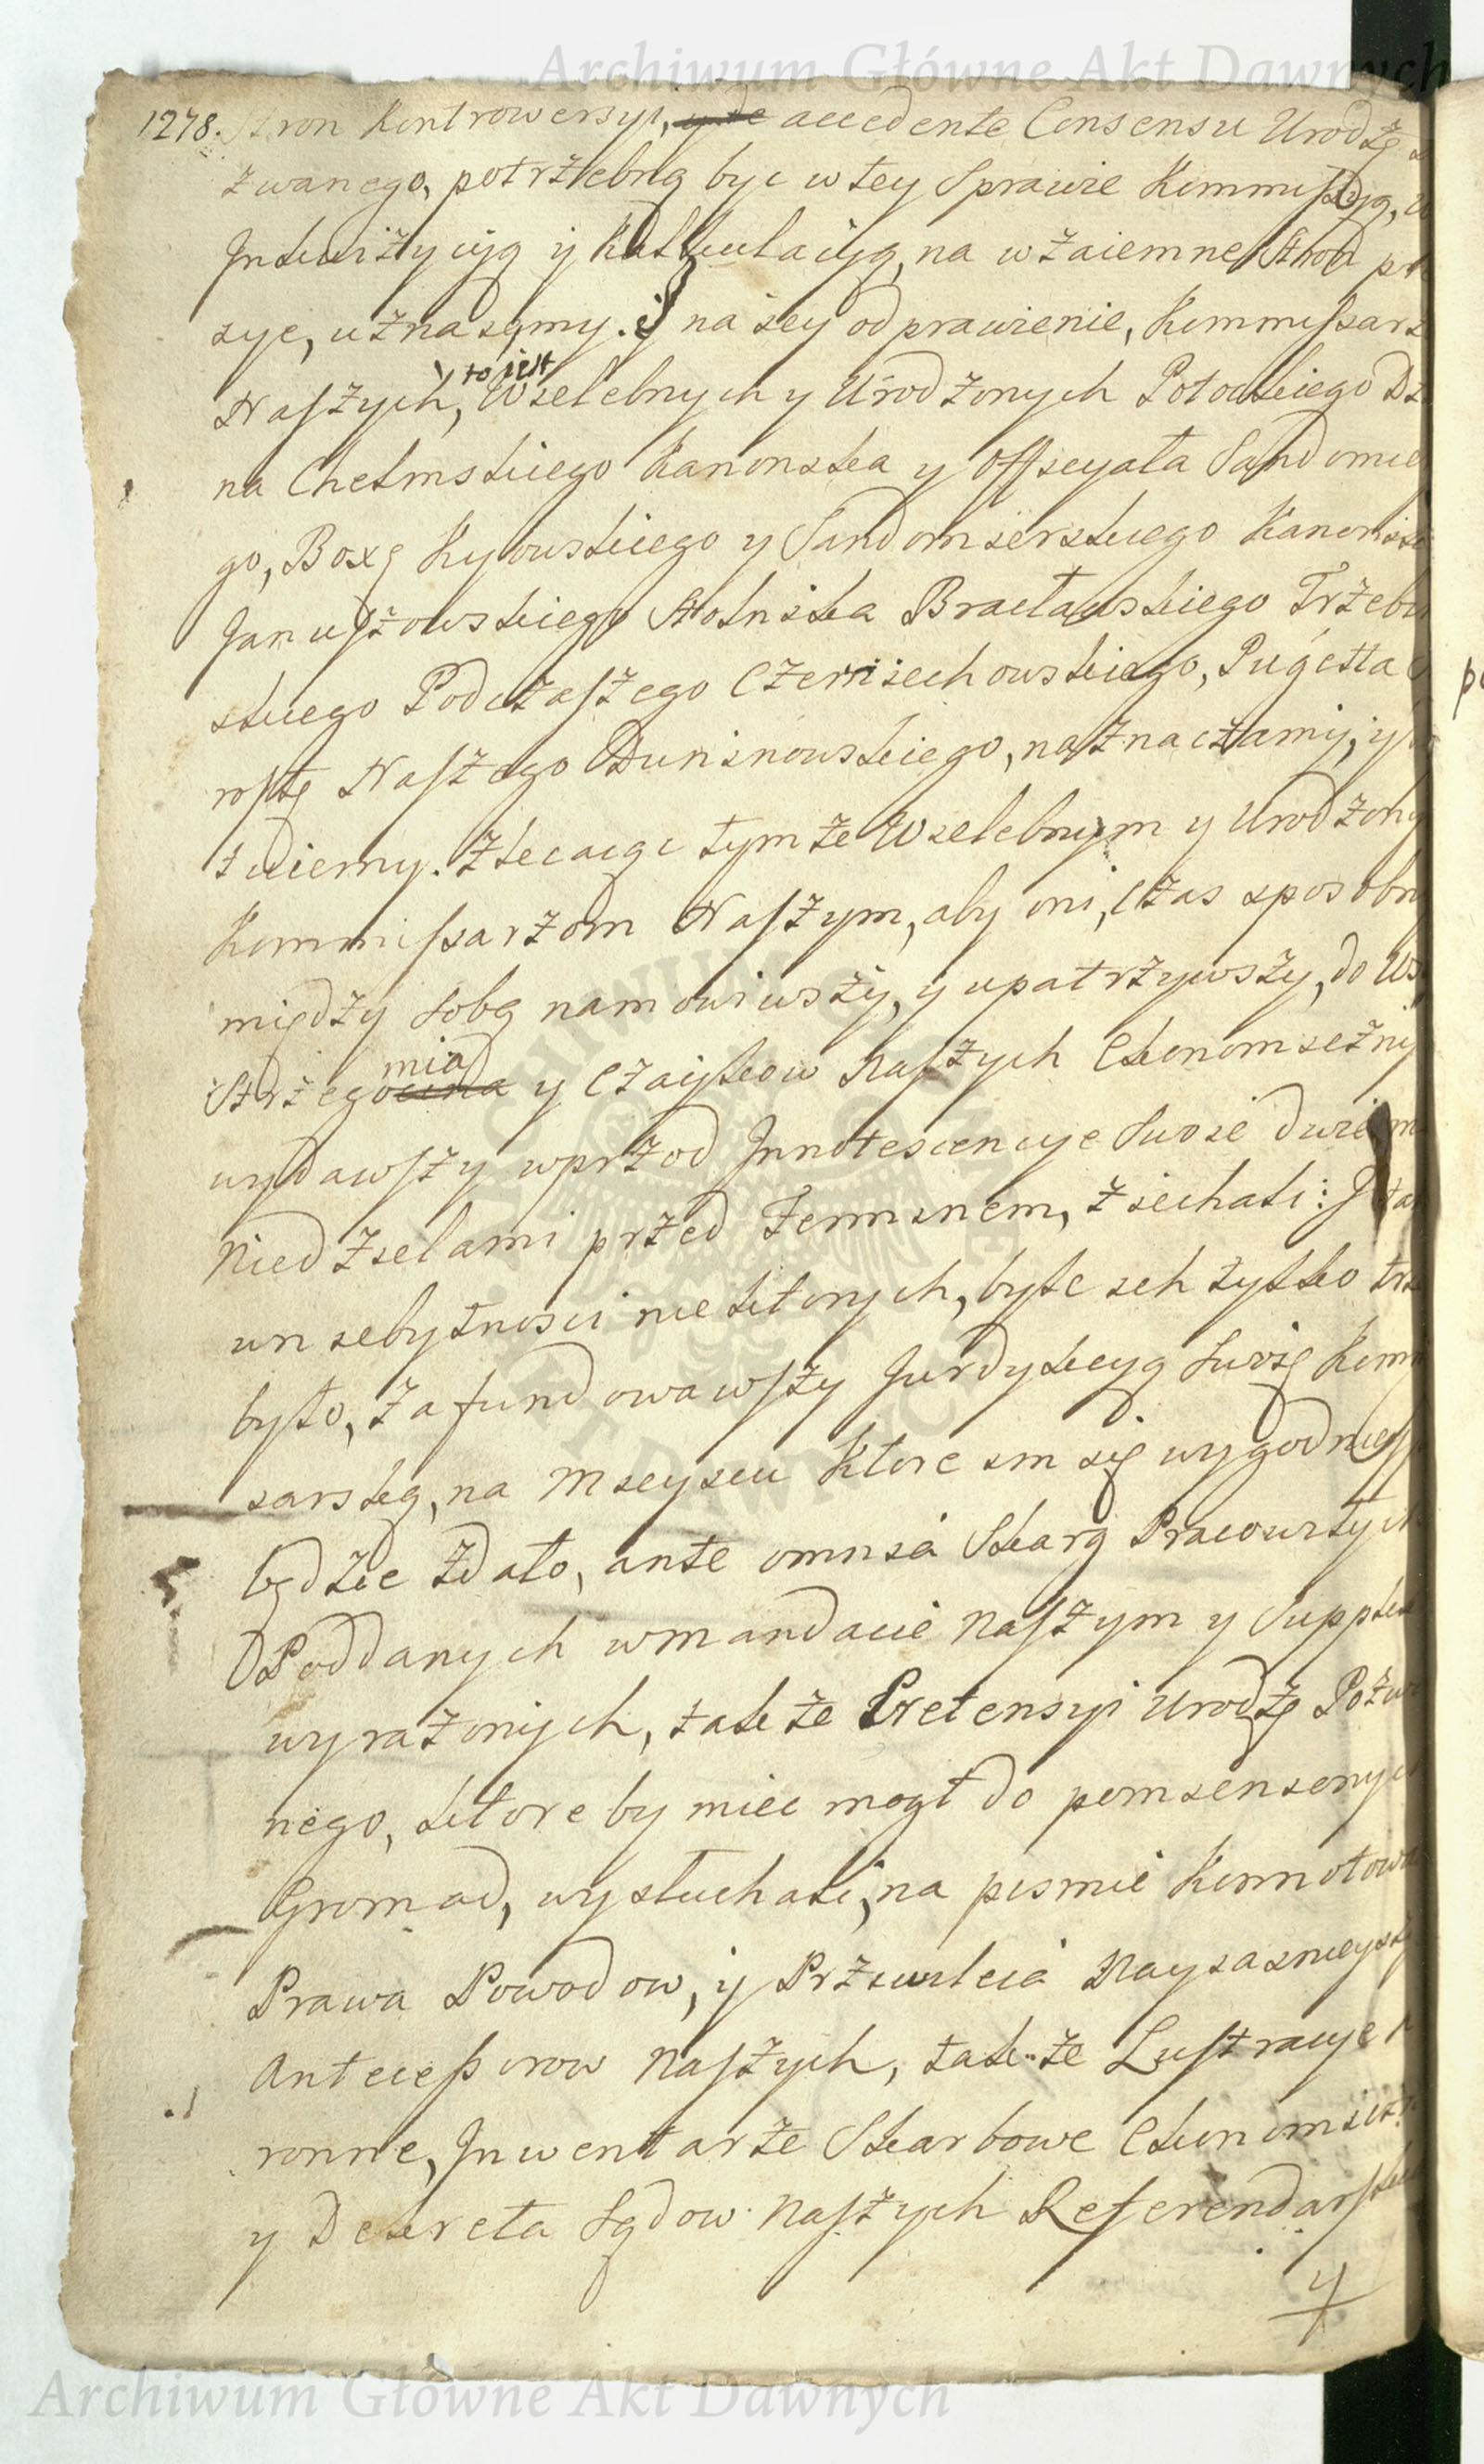 Archiwum Główne Akt Dawnych
1278. Stron Kontrowersyi, accedente Consensu Urodzę
zwanego, potrzebną być w tey Sprawie Kommissyą,
Inkwizycyą y Kalkulacyą, na wzaiemne Stron
sye, uznaismy. y na iey odprawienie, Kommissarz
Naszych, to iest Wielebnych y Urodzonych Potockiego Dz
na Chełmskiego Kanonika y Offycyała Sandomie
go, Boxę Kyiowskiego y Sandomierskiego Kanonik
Januszowskiego Stolnika Bracławskiego Trzebi
skiego Podczaszego Czerniechowskiego, Pugetta
rostę Naszego Duninowskiego, naznaczamy, y
zuiemy. Zlecaiąc tymże Wielebnym y Urodzony
Kommissarzom Naszym, aby oni, czas sposobny
między sobą namowiwszy, y upatrzywszy, do Ws
Strzegomia y Czayków Naszych Ekonomiczny
wydawszy wprzod Innotescencye Swoie dwiema
Niedzielami przed Terminem, ziechali: I
w niebytnosci niektorych, byle ich tylko trz
było, zafundowawszy Jurdykcyą Swoię Komm
sarską, na Mieyscu Ktore im się wygodniey
będzie zdało, ante omnia Skarg Pracowitych
Poddanych w mandacie Naszym y Supplik
wyrażonych, także Pretensyi Urodzę Pozwa
nego, ktore by miec mogł do pomienionych
Gromad, wysłuchali, na pismie Konnotowa
Prawa Powodow, y Przywileia Nayiasnieysz
Antecessorow Naszych, tak-że Lustracye
ronne, Inwentarze Skarbowe Ekonomiczn
y Dekreta Sądow Naszych Referendarsk
y
Archiwum Główne Akt Dawnych